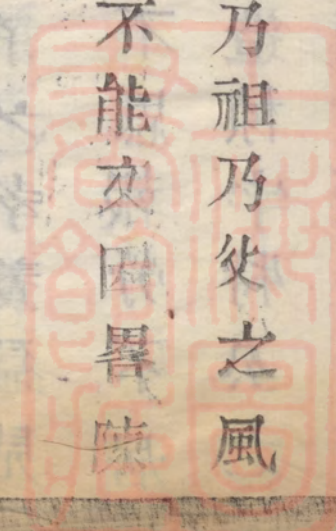 乃祖乃父之風
不能文因畧陳